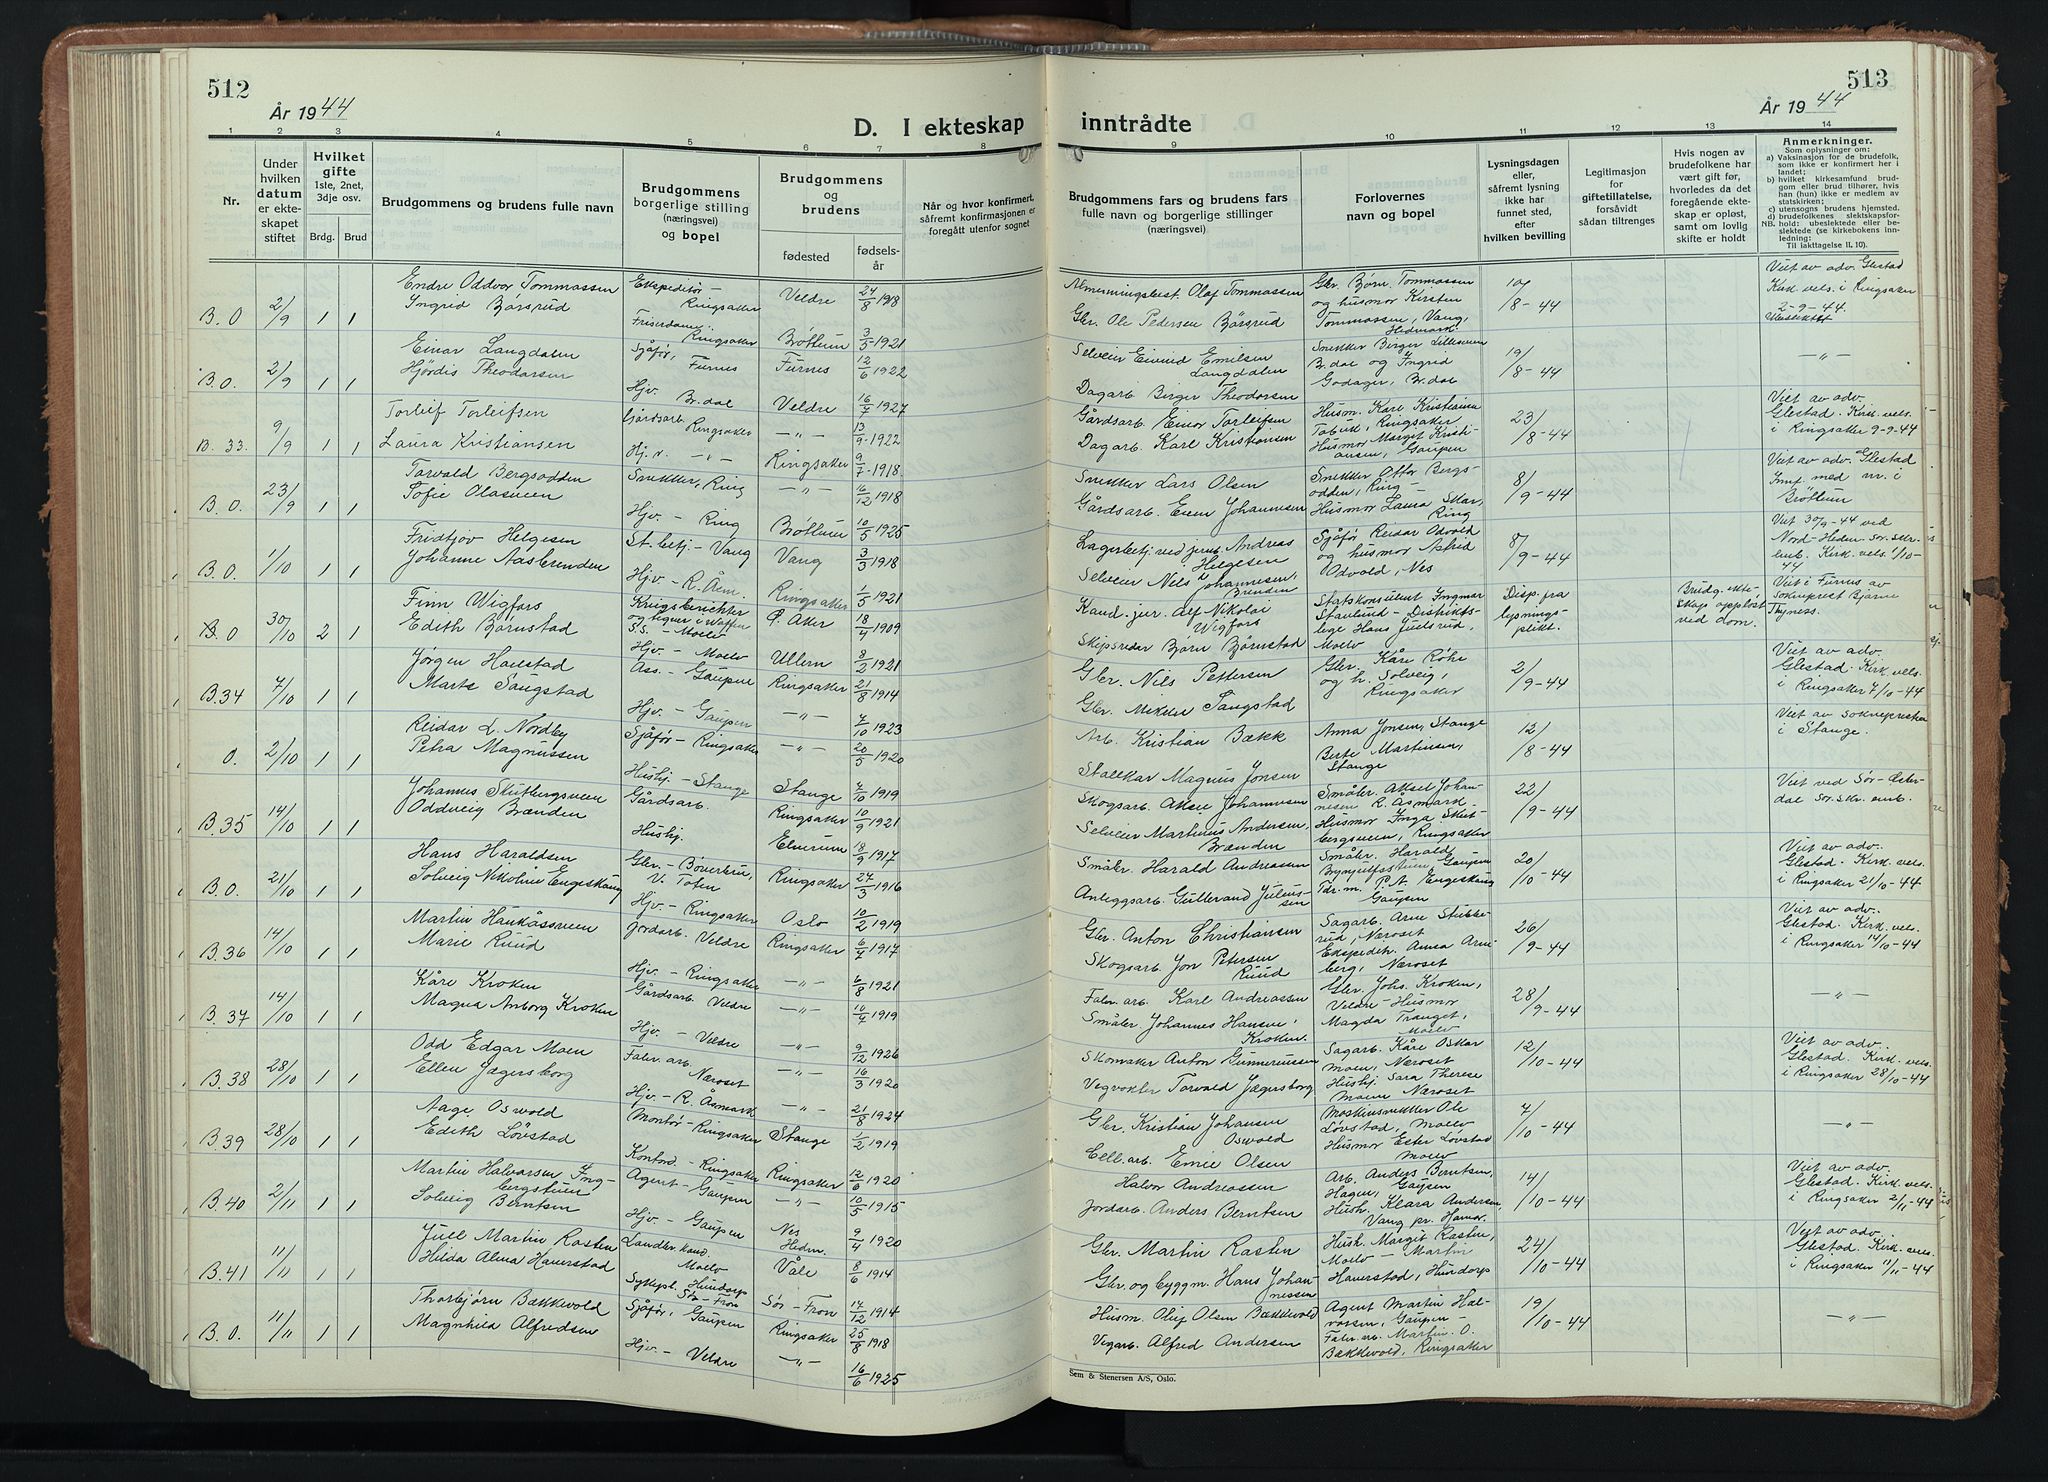 512
År 1944
D. I ekteskap
1
2
3
4
5
6
7
8
Nr.
Under hvilken datum er ekteskapet stiftet
Hvilket gifte
1ste, 2net, 3dje osv.
Brdg.
Brud
Brudgommens og brudens fulle navn
Brudgommens borgerlige stilling (næringsvei) og bopel
Brudgommens og brudens
fødested
fødselsår
Når og hvor konfirmert, såfremt konfirmasjonen er foregått utenfor sognet
B. 0 2/9 1 1 Endre Oddvor Tommassen Ekspeditør - Ringsaker Veldre 24/8 1918
Ingrid Børsrud Friserdame Ringsaker Brøttum 3/5 1921
B. 0. 2/9 1 1 Einar Langdalen Sjåfør, Furnes Furnes 12/6 1922
Hjördis Theodorsen Hjv. Br.dal Veldre 16/7 1927
B. 33. 9/9 1 1 Torleif Torleifsen Gårdsarb. Ringsaker -"- 13/9 1922
Laura Kristiansen Hj.v. -"- Ringsaker 9/7 1918.
B. 0. 23/9 1 1 Torvald Bergsodden Snekker, Ring -"- 16/12 1918
Tofie Olasveen Hjv. - Ring Brøttum 10/5 1925
B. 0. 1/10 1 1 Fridtjov Helgesen St.betj. - Vang Vang 3/3 1918
Johanne Aasbrenden Hjv - R. Åsm. Ringsaker 1/5 1921
B. 0 30/10 2 1 Finn Wigfors Krigsberichter og tegner i Waffen S.S. - Moelv Ø. Aker 18/4 1909
Edith Børnstad Hjv - Moelv Ullern 8/2 1921
B. 34 7/10 1 1 Jørgen Ass. - Gaupen Ringsaker 21/8 1914
Marte Sangstad Hjv. - Gaupen -"- 7/10 1923
0. 2/10 1 1 Reidar L. Nordby Sjåfør - Ringsaker -"- 20/5 1920
Petra Magnussen Hushj - Stange Stange 7/10 1919
B. 35 14/10 1 1 Johannes Gårdsarb. Ringsaker 10/9 1921
Oddveig Brænden Hushj. Elverum 18/9 1917
B. 0. 21/10 1 1 Hans Haraldsen Gbr. V. Toten Ringsaker 27/3 1916
Solveig Nikoline Engeskaug Hjv. - Ringsaker Oslo 10/2 1919
B. 36 14/10 1 1 Martin Haukåssveen Jordarb. Veldre Ringsaker 6/7 1917
Marie Ruud Hjv. - Ringsaker -"- 6/8 1921
B. 37 14/10 1 1 Kåre Kroken Gårdsarb. Veldre -"- 10/7 1919
Magna Anborg Kroken Hjv. - Veldre -"- 9/12 1926
B. 38 28/10 1 1 Odd Edgar Moen Fabr. arb. Næroset -"- 16/3 1920
Ellen Jægersborg Hjv. - R. Åsmark -"- 21/8 1924
B. 39 28/10 1 1 Aage Oswold Montør - Ringsaker Stange 1/2 1919
Edith Løvstad Kontord. - Ringsaker Ringsaker 12/6 1920
B. 40 2/11 1 1 Martin Halvorsen Ingbergstuen Agent - Gaupen -"- 10/5 1915
Solveig Berntsen Hjv. - Gaupen Nes Hedm. 9/4 1920
B. 41 11/11 1 1 Juel Martin Rasten Landbr. kand. Moelv Våle 8/6 1914
Hilda Alma Haverstad Sykepl. Hundorp Sør-Fron Sør-Fron 17/12 1914
B. 0. 11/11 1 1 Thorbjørn Bækkevold Sjåfør, Gaupen Ringsaker 25/8 1918
Magnhild Alfredsen Hjv. - Veldre -"- 16/6 1925
513
År 1944
inntrådte
9
10
11
12
13
14
Brudgommens fars og brudens fars fulle navn og borgerlige stillinger (næringsvei)
Forlovernes navn og bopel
Lysningsdagen eller, såfremt lysning ikke har funnet sted, efter hvilken bevilling
Legitimasjon for giftetillatelse, forsåvidt sådan tiltrenges
Hvis nogen av brudefolkene har vært gift før, hvorledes da det foregående ekteskap er opløst, samt om lovlig skifte er holdt
Anmerkninger.
Som oplysninger om:
a) Vaksinasjon for de brudefolk, som ikke er konfirmert her i landet;
b) hvilket kirkesamfund brudgom eller brud tilhører, hvis han (hun) ikke er medlem av statskirken;
c) utensogns brudens hjemsted.
d) brudefolkenes slektskapsforhold: ubeslektede eller beslektede (se kirkebokens innledning:
NB. Til iakttagelse II. 10).
Almenningsbest. Olaf Tommassen Gbr. Bjørn Tommassen og husmor Kirsten Tommassen, Vang, Hedmark. 10/8-44 Viet av adv. Glestad Kirk. vels. i Ringsaker 2-9-44. Ubeslektet
Gbr. Ole Pedersen Børsrud
Selveier Eivind Emilsen Langdalen Snekker Birger Lillesveen Br.dal og Ingrid Godager, Br.dal 19/8-44 -"-
Dagarb. Birger Theodorsen
Gårdsarb. Einar Torleifsen Husm. Kåre Kristiansen Ringsaker Husmor Margit Kristiansen, Gaupen 23/8-44 Viet av adv. Glestad. Kirk. vels. i Ringsaker 9-9-44
Dagarb. Karl Kristiansen
Snekker Lars Olsen Snekker Bergsodden, Ring - Husmor Laura Skar, Ring 8/9-44 Viet av adv. Glestad Innf. med nr. i Brøttum
Gårdsarb. Even Johannesen
Lagerbetj ved jernb. Andreas Helgesen Sjåfør Reidar Odvold og husmor Astrid Odvold, Nes 8/9-44 Viet 30/9-44 ved Nord-Heden sor.skr. emb. Kirk. vels. 1/10-44
Selveier Nils Johannesen Brenden
Kand. jur. Alf Nikolai Wigfors Statskonsulent Ingmar - Distriktslege Hans Moelv Disp. fra lysningsplikt. Brudg. ekteskap oppløst ved dom. Viet i Furnes av sokneprest Bjarne Thyness.
Skipsreder Bjørn Børnstad
Gbr. Nils Pettersen Gbr. Kåre Røhr og h. Solveig, Ringsaker 2/9-44 Viet av adv. Glestad. Kirk. vels. i Ringsaker 7/10-44
Gbr. Sangstad
Arb. Kristian Bækk Anna Jonsen, Stange Berte Martinsen, Stange 12/8-44 Viet av soknepresten i Stange.
Stallkar Magnus Jonsen
Skogsarb. Aksel Johannesen Småbr. Aksel Johannesen R. Åsmark - Husmor Inga Ringsaker 22/9-44 Viet ved Sør-Østerdal sor.skr. emb.
Selveier Martinus Andersen, Brænden
Småbr. Harald Andreassen Småbr. Harald Gaupen P.A. Engeskaug Gaupen 20/10-44 Viet av adv. Glestad. Kirk. vels. i Ringsaker 21/10-44
Anleggsarb. Gulbrand Juliussen
Gbr. Anton Christiansen Sagarb. Arne Stubberud, Næroset Ekspeditr. Anna Arneberg, Næroset 26/9-44 Viet av adv. Glestad. Kirk. vels. i Ringsaker 14/10-44
Skogsarb. Jon Petersen Ruud
Fabr. arb. Karl Andreassen Gbr. Johs. Kroken, Veldre - Husmor Magda Tranget, Moelv 28/9-44 -"-
Småbr Johannes Hansen Kroken
Skomaker Anton Gunnerussen Sagarb. Kåre Oskar Moen, Næroset Hushj Sara Therese Moen Næroset 12/10-44 Viet av adv. Glestad. Kirk. vels. i Ringsaker 28/10-44
Vegvokter Torvald Jægersborg
Gbr. Kristian Johansen Oswold Maskinsnekker Ole Løvstad, Moelv Husmor Ester Løvstad Moelv 7/10-44 -"-
Cell. arb. Emil Olsen
Halvor Andreassen Arb. Anders Berntsen, Hagen, Gaupen Hush. Klara Andersen, Vang pr. Hamar. 14/10-44 Viet av adv. Glestad. Kirk. vels. i Ringsaker 2/11-44
Jordarb. Anders Berntsen
Gbr. Martin Rasten Hush. Margit Rasten, Moelv - Martin Haverstad, Hundorp 24/10-44 Viet av adv. Glestad. Kirk. vels. i Ringsaker 11/11-44
Gbr og byggm. Hans Johannessen
Husm. Oluf Olsen Bækkevold Agent Martin Halvorsen, Gaupen - Fabr. arb. Martin O. Bækkevold, Ringsaker 19/10-44 -"-
Vegarb. Alfred Andersen
Sem & Stenersen A/S, Oslo.